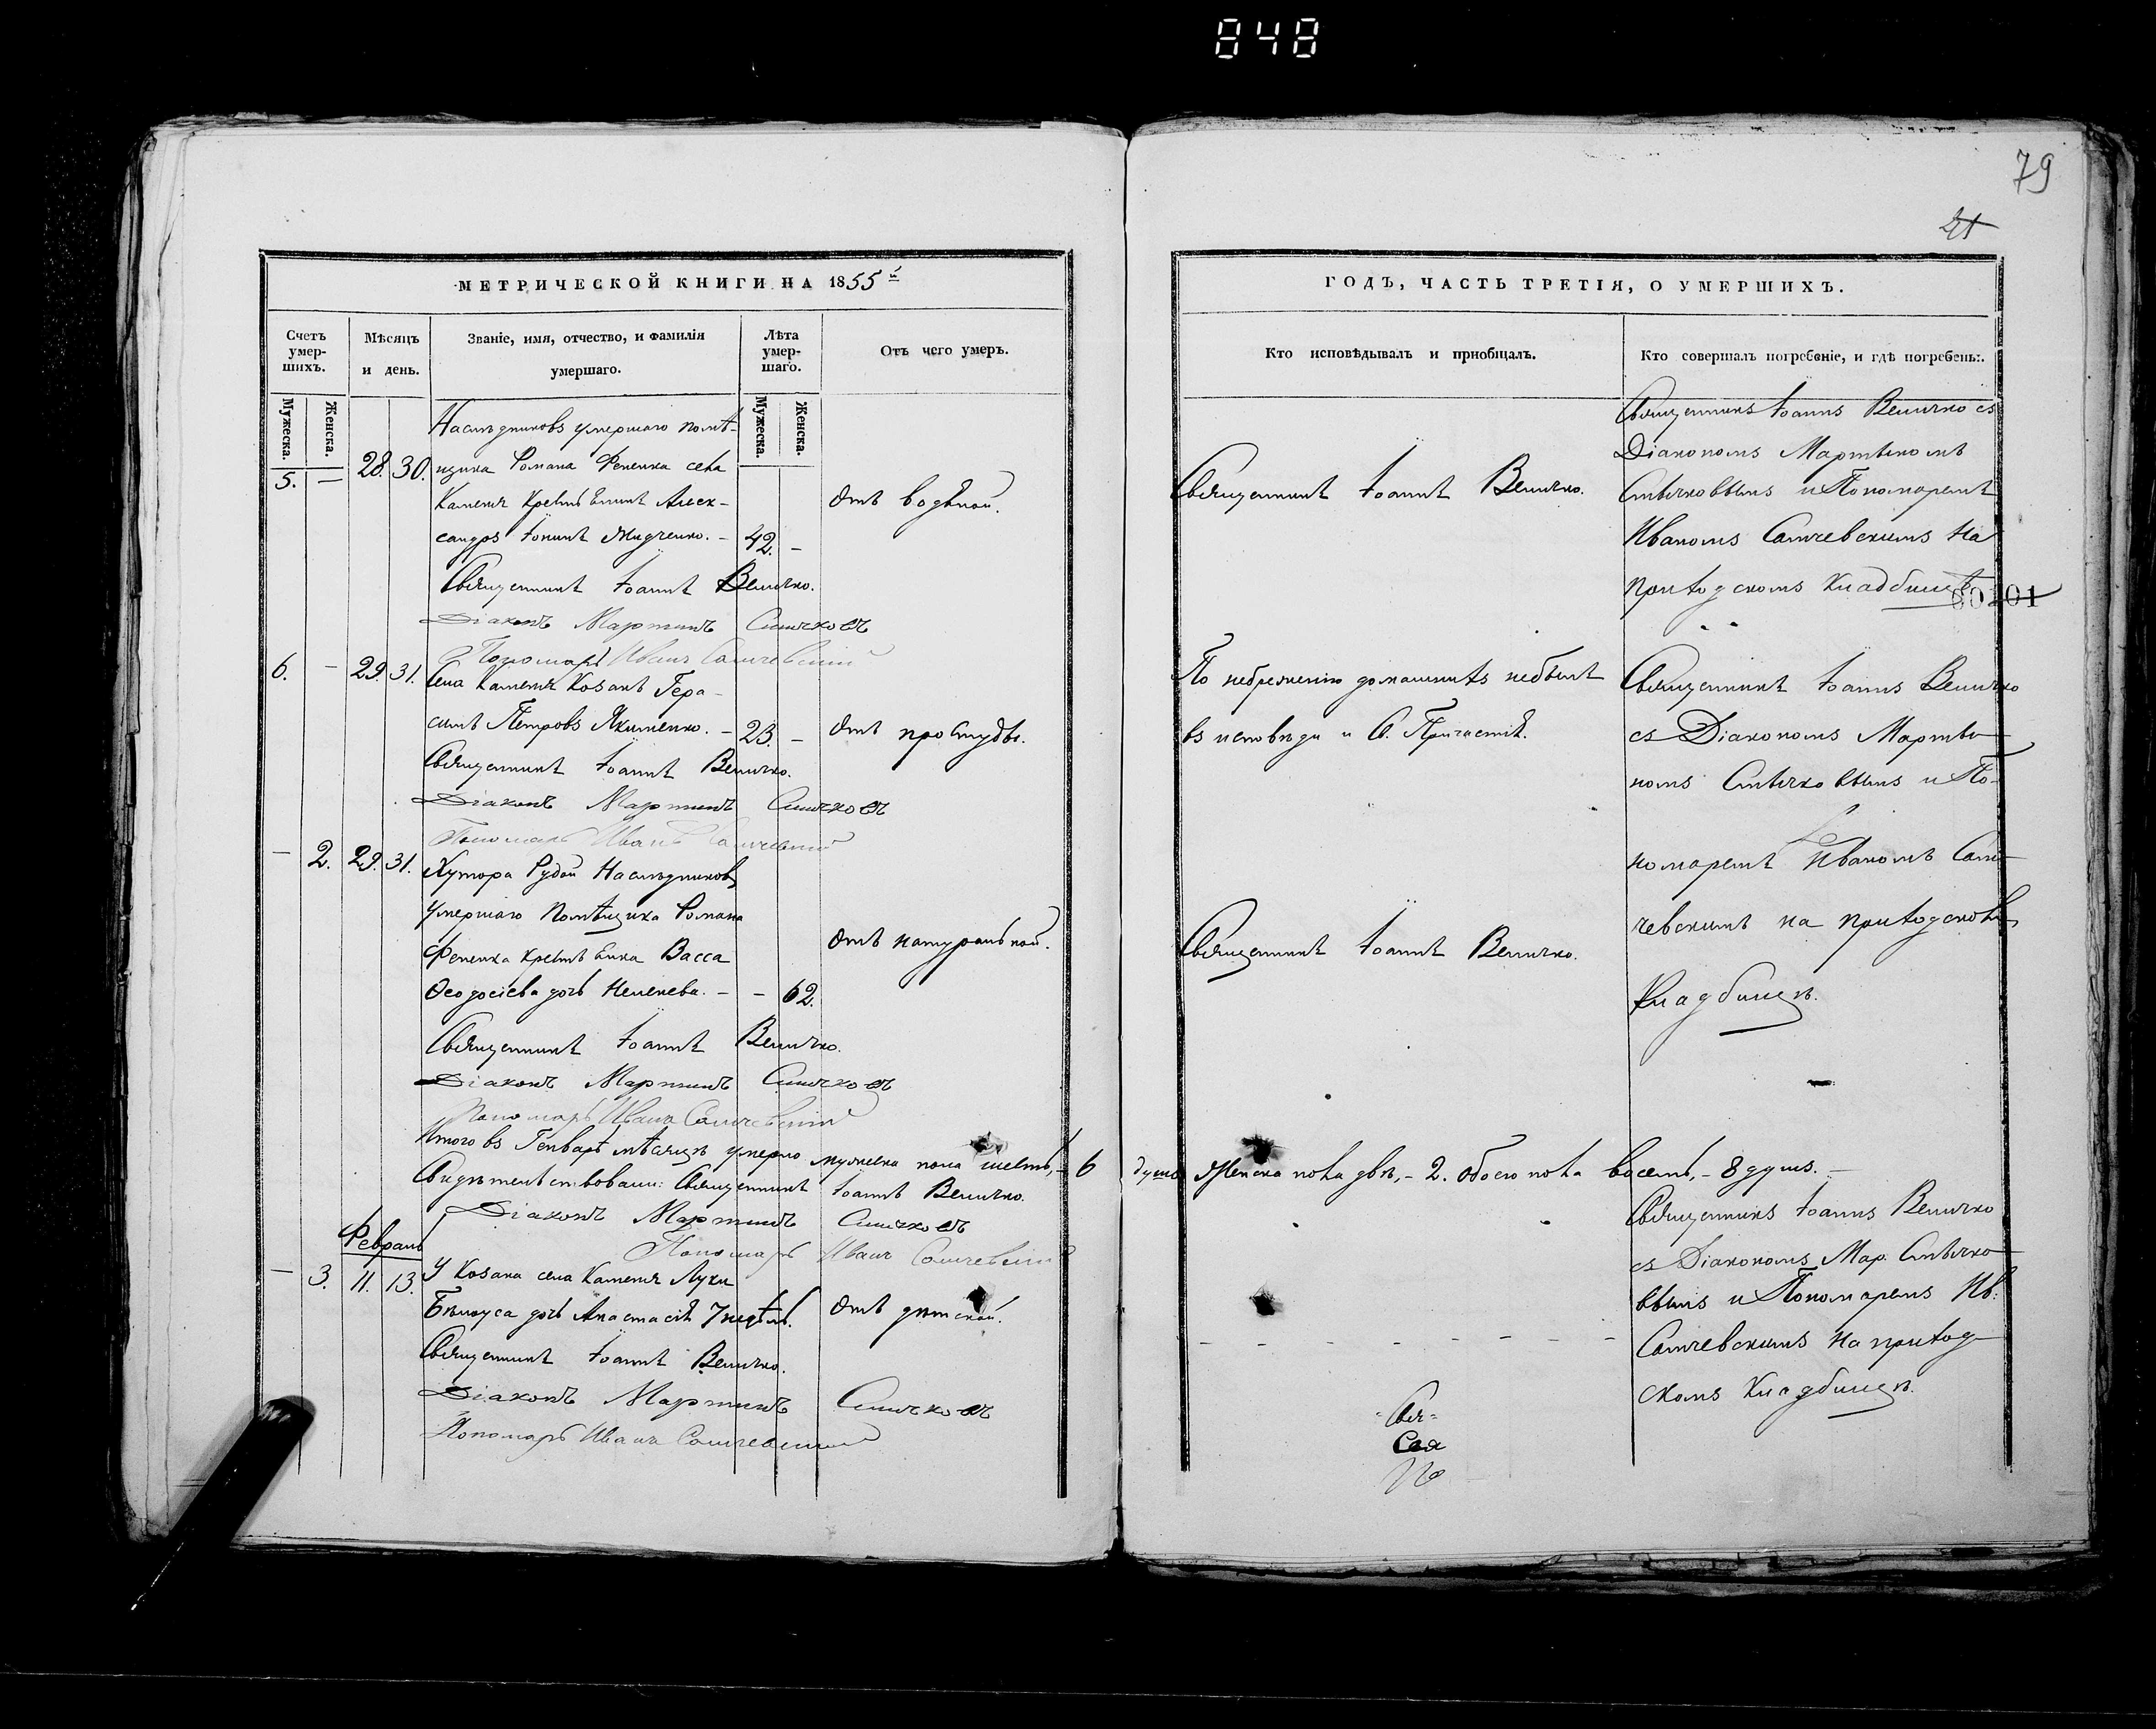 848
79
21
МЕТРИЧЕСКОЙ КНИГИ НА 1855й
Счетъ умер-шихъ.
Мѣсяцъ и день.
Званіе, имя, отчество, и фамилія умершаго.
Лѣта умер-шаго.
Отъ чего умеръ.
Мужеска.
Женска.
Мужеска.
Женска.
Наслѣдниковъ умершаго помѣ-
5. — 28. 30. щика Романа Фененка села
Каменя крестьянинъ Алек-
сандръ Іоминъ Жидченко. — 42. —
Отъ водяной.
Священникъ Іоаннъ Величко.
Діаконъ Мартинъ Силичковъ
Пономарь Иванъ Самчевскій
6. — 29. 31. Села Каменя Козакъ Гера-
симъ Петровъ Якименко. — 23. — Отъ простуды.
Священникъ Іоаннъ Величко.
Діаконъ Мартинъ Силичковъ
Пономарь Иванъ Самчевскій
— 2. 29. 31. Хутора Рудой Наслѣдниковъ
умершаго Помѣщика Романа
Фененка крестьянка Васса
Отъ натуральной.
Ѳеодосіева дочь — — 62.
Священникъ Іоаннъ Величко.
Діаконъ Мартинъ Силичковъ
Пономарь Иванъ Самчевскій
Итого въ Генварѣ мѣсяцѣ умерло мужеска пола шесть, — 6
Свидѣтельствовали: Священникъ Іоаннъ Величко.
Діаконъ Мартинъ Силичковъ
Пономарь Иванъ Самчевскій
Февраль
— 3. 11. 13. У Козака села Каменя Луки
Бѣлоуса дочь Анастасія 7 недѣль. Отъ дѣтской.
Священникъ Іоаннъ Величко.
Діаконъ Мартинъ Силичковъ
Пономарь Иванъ Самчевскій
ГОДЪ, ЧАСТЬ ТРЕТІЯ, О УМЕРШИХЪ.
Кто исповѣдывалъ и пріобщалъ.
Кто совершалъ погребеніе, и гдѣ погребены.
Священникъ Іоаннъ Величко.
Священникъ Іоаннъ Величко съ
Діакономъ Мартыномъ
Силичковымъ и Пономаремъ
Иваномъ Самчевскимъ на
приходскомъ кладбищѣ
По небреженію домашнихъ небылъ
въ исповѣди и С. Причастія.
Священникъ Іоаннъ Величко
съ Діакономъ Марты-
номъ Силичковымъ и По-
номаремъ Иваномъ Сам-
чевскимъ на приходскомъ
Кладбищѣ.
Священникъ Іоаннъ Величко.
душъ Женска пола двѣ, — 2. обоего пола восемь, — 8 душъ. —
Священникъ Іоаннъ Величко
съ Діакономъ Мар. Силичко-
вымъ и Пономаремъ Ив:
Самчевскимъ на приход-
скомъ кладбищѣ.
Свя=